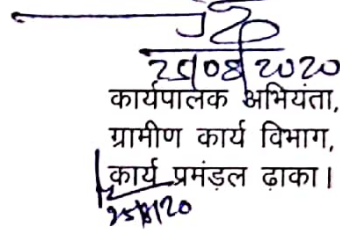 25/08/2020
कार्यपालक अभियंता,
ग्रामीण कार्य विभाग,
कार्य प्रमंडल ढ़ाका।
25/8/20